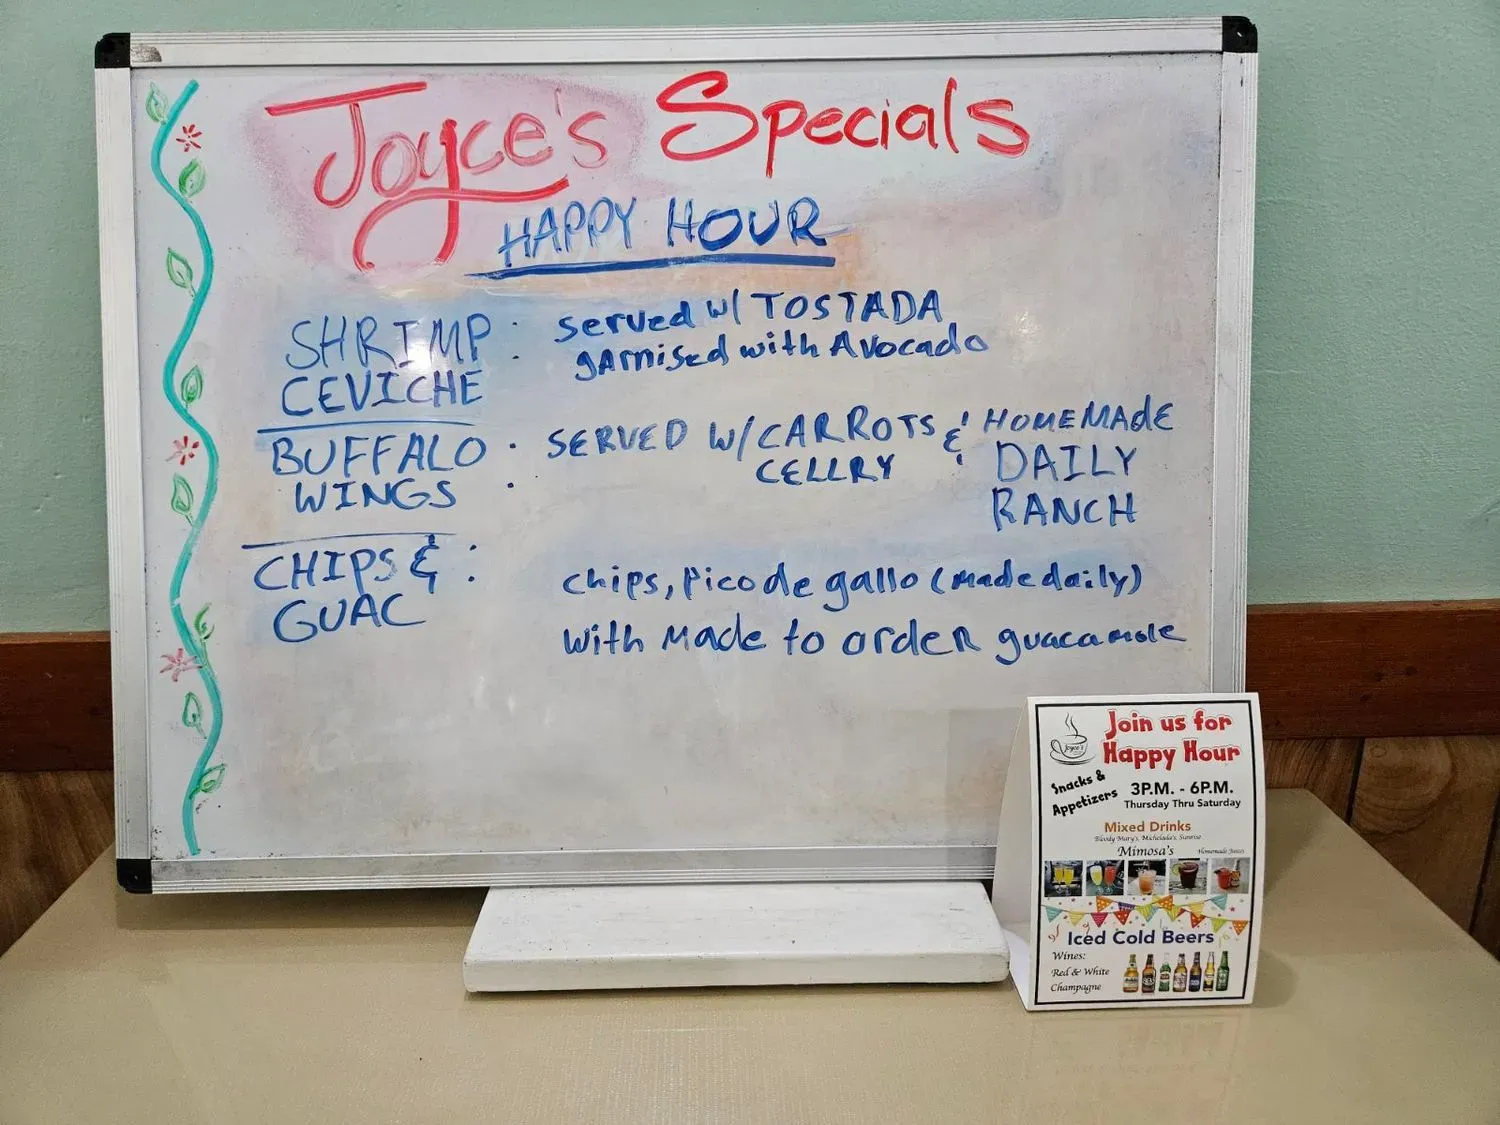 Joyce's Specials
HAPPY HOUR
SHRIMP :
CEVICHE
served w/ TOSTADA
garnised with Avocado
BUFFALO :
WINGS
SERVED W/ CARROTS &
CELLRY
HOMEMADE
DAILY
RANCH
CHIPS & :
GUAC
chips, Pico de gallo (made daily)
with made to order guacamole
Joyce's
Join us for
Happy Hour
Snacks &
Appetizers
3P.M. - 6P.M.
Thursday Thru Saturday
Mixed Drinks
Bloody Mary's, Michelada's, Sunrise
Mimosa's
Homemade Juices
Iced Cold Beers
Wines:
Red & White
Champagne